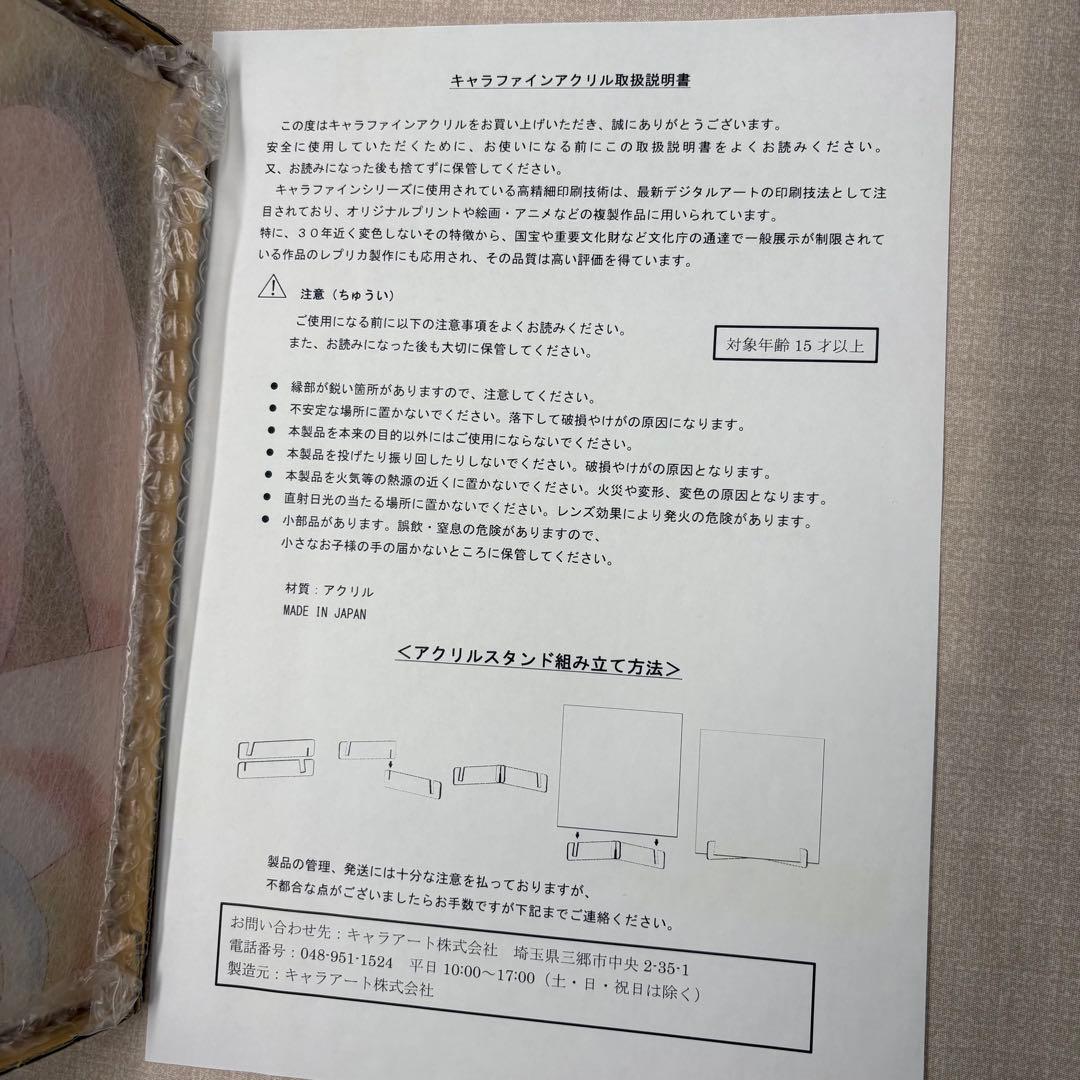 キャラファインアクリル取扱説明書
この度はキャラファインアクリルをお買い上げいただき、誠にありがとうございます。
安全に使用していただくために、お使いになる前にこの取扱説明書をよくお読みください。
又、お読みになった後も捨てずに保管してください。
キャラファインシリーズに使用されている高精細印刷技術は、最新デジタルアートの印刷技法として注
目されており、オリジナルプリントや絵画・アニメなどの複製作品に用いられています。
特に、３０年近く変色しないその特徴から、国宝や重要文化財など文化庁の通達で一般展示が制限されて
いる作品のレプリカ製作にも応用され、その品質は高い評価を得ています。
注意（ちゅうい）
ご使用になる前に以下の注意事項をよくお読みください。
また、お読みになった後も大切に保管してください。
対象年齢 15 才以上
● 縁部が鋭い箇所がありますので、注意してください。
● 不安定な場所に置かないでください。落下して破損やけがの原因になります。
● 本製品を本来の目的以外にはご使用にならないでください。
● 本製品を投げたり振り回したりしないでください。破損やけがの原因となります。
● 本製品を火気等の熱源の近くに置かないでください。火災や変形、変色の原因となります。
● 直射日光の当たる場所に置かないでください。レンズ効果により発火の危険があります。
● 小部品があります。誤飲・窒息の危険がありますので、
小さなお子様の手の届かないところに保管してください。
材質：アクリル
MADE IN JAPAN
＜アクリルスタンド組み立て方法＞
製品の管理、発送には十分な注意を払っておりますが、
不都合な点がございましたらお手数ですが下記までご連絡ください。
お問い合わせ先：キャラアート株式会社　埼玉県三郷市中央 2-35-1
電話番号：048-951-1524　平日 10:00～17:00（土・日・祝日は除く）
製造元：キャラアート株式会社